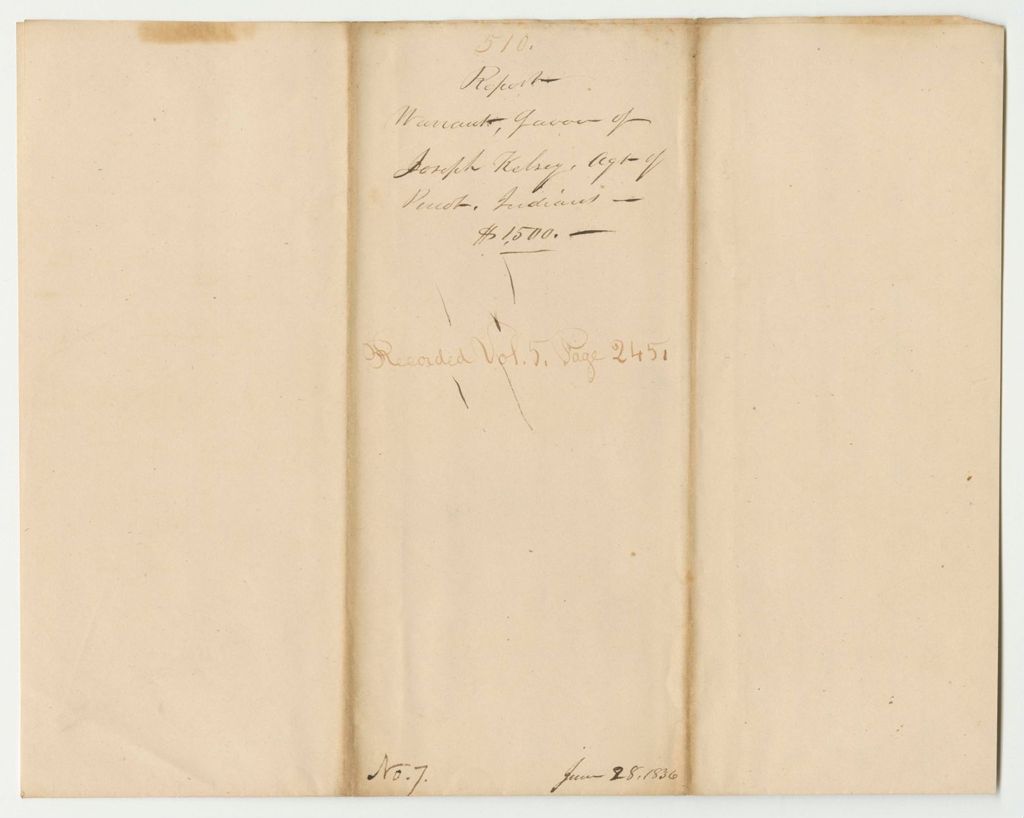 510.
Report
Warrant, favor of
Joseph Kelsey, Agt of
Penot. Indians —
$1,500. —
Recorded Vol. 5. Page 245.
No. 7.
June 28. 1836